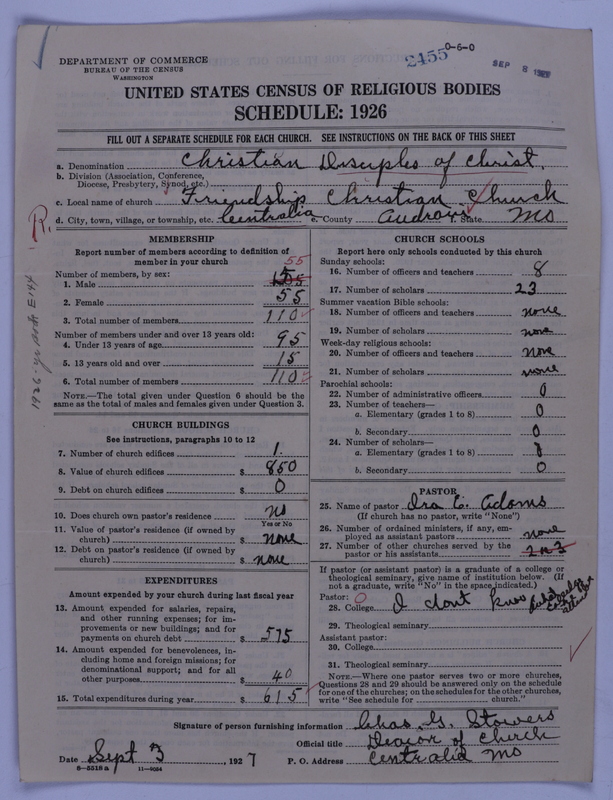 0-6-0
2455
SEP 8 1927
DEPARTMENT OF COMMERCE
BUREAU OF THE CENSUS
WASHINGTON
UNITED STATES CENSUS OF RELIGIOUS BODIES
SCHEDULE: 1926
FILL OUT A SEPARATE SCHEDULE FOR EACH CHURCH. SEE INSTRUCTIONS ON THE BACK OF THIS SHEET
a. Denomination Christian Disciples of Christ.
b. Division (Association, Conference,
Diocese, Presbytery, Synod, etc.)
c. Local name of church Friendship Christian Church
R. d. City, town, village, or township, etc. Centralia e. County Audrain f. State Mo
MEMBERSHIP
Report number of members according to definition of
member in your church
55
Number of members, by sex:
1. Male
2. Female 55
3. Total number of members 110
Number of members under and over 13 years old:
4. Under 13 years of age 95
5. 13 years old and over 15
6. Total number of members 110
NOTE.—The total given under Question 6 should be
same as the total of males and females given under Question 3.
CHURCH BUILDINGS
See instructions, paragraphs 10 to 12
7. Number of church edifices 1.
8. Value of church edifices $ 850
9. Debt on church edifices $ 0
10. Does church own pastor's residence no
Yes or No
11. Value of pastor's residence (if owned by
church) $ none
12. Debt on pastor's residence (if owned by
church) $ none
EXPENDITURES
Amount expended by your church during last fiscal year
13. Amount expended for salaries, repairs,
and other running expenses; for im-
provements or new buildings; and for
payments on church debt $ 575
14. Amount expended for benevolences, in-
cluding home and foreign missions; for
denominational support; and for all
other purposes $ 40
15. Total expenditures during year $ 615
CHURCH SCHOOLS
Report here only schools conducted by this church
Sunday schools:
16. Number of officers and teachers 8
17. Number of scholars 23
Summer vacation Bible schools:
18. Number of officers and teachers none
19. Number of scholars none
Week-day religious schools:
20. Number of officers and teachers none
21. Number of scholars none
Parochial schools:
22. Number of administrative officers 0
23. Number of teachers—
a. Elementary (grades 1 to 8) 0
b. Secondary 0
24. Number of scholars—
a. Elementary (grades 1 to 8) 0
b. Secondary 0
PASTOR
25. Name of pastor Ira C. Adams
(If church has no pastor, write "None")
26. Number of ordained ministers, if any, em-
ployed as assistant pastors none
27. Number of other churches served by the
pastor or his assistants 2 or 3
If pastor (or assistant pastor) is a graduate of a college or
theological seminary, give name of institution below. (If
not a graduate, write "No" in the space indicated.)
Pastor: 0
28. College I dont know
29. Theological seminary
Assistant pastor:
30. College
31. Theological seminary
NOTE.—Where one pastor serves two or more churches,
Questions 28 and 29 should be answered only on the schedule
for one of the churches; on the schedules for the other churches,
write "See schedule for church."
Signature of person furnishing information Chas. G. Stowers
Official title Deacon of Church
Date Sept 3, 1927 P. O. Address Centralia Mo
8-5518 a 11-9024